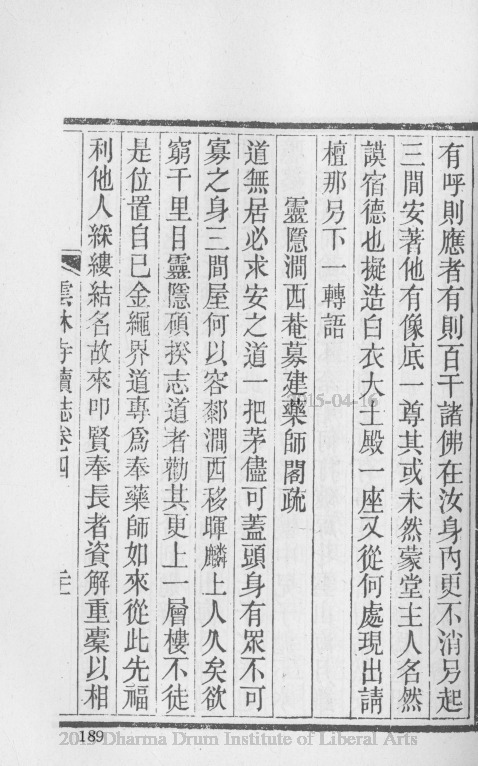 有呼則應者有則百千諸佛在汝身內更不消另起
三間安著他有像底一尊其或未然蒙堂主人名然
謨宿德也擬造白衣大士殿一座又從何處現出請
檀那另下一轉語
靈隱澗西菴募建藥師閣疏
道無居必求安之道一把茅儘可蓋頭身有眾不可
寡之身三間屋何以容鄰澗西移暉麟上人久矣欲
窮千里目靈隱碩揆志道者勸其更上一層樓不徒
是位置自已金繩界道專為奉藥師如來從此先福
利他人綵縷結名故來叩賢奉長者資解重橐以相
雲林寺續誌卷四
三
189
2015-04-16
2015 Dharma Drum Institute of Liberal Arts